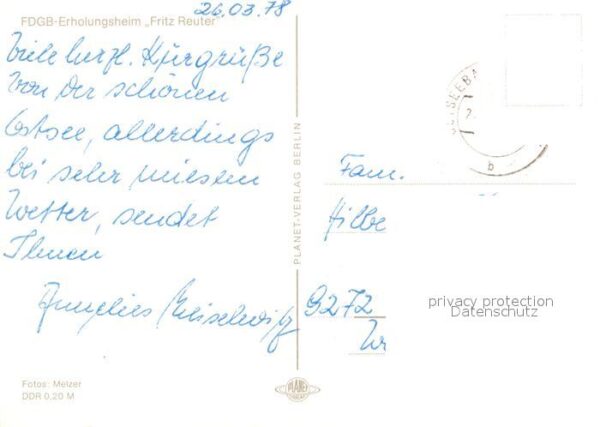 26.03.78
FDGB-Erholungsheim „Fritz Reuter"
Viele herzl. Kurgrüße
von der schönen
Ostsee, allerdings
bei sehr miesem
Wetter, sendet
Ihnen
PLANET-VERLAG BERLIN
OSTSEEBA
b
Fam.
Hilbe
9272
privacy protection
Datenschutz
Fotos: Melzer
DDR 0,20 M
PLANET